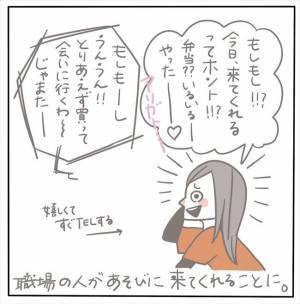 もしもし!!?
今日、来てくれる
ってホント!!?
弁当??いるいるー
やったー♡
アリガトー
もしもーし
うん・うん!!
とりあえず買って
会いに行くわ〜
じゃまたー
嬉しくて
すぐTELする
職場の人があそびに来てくれることに。